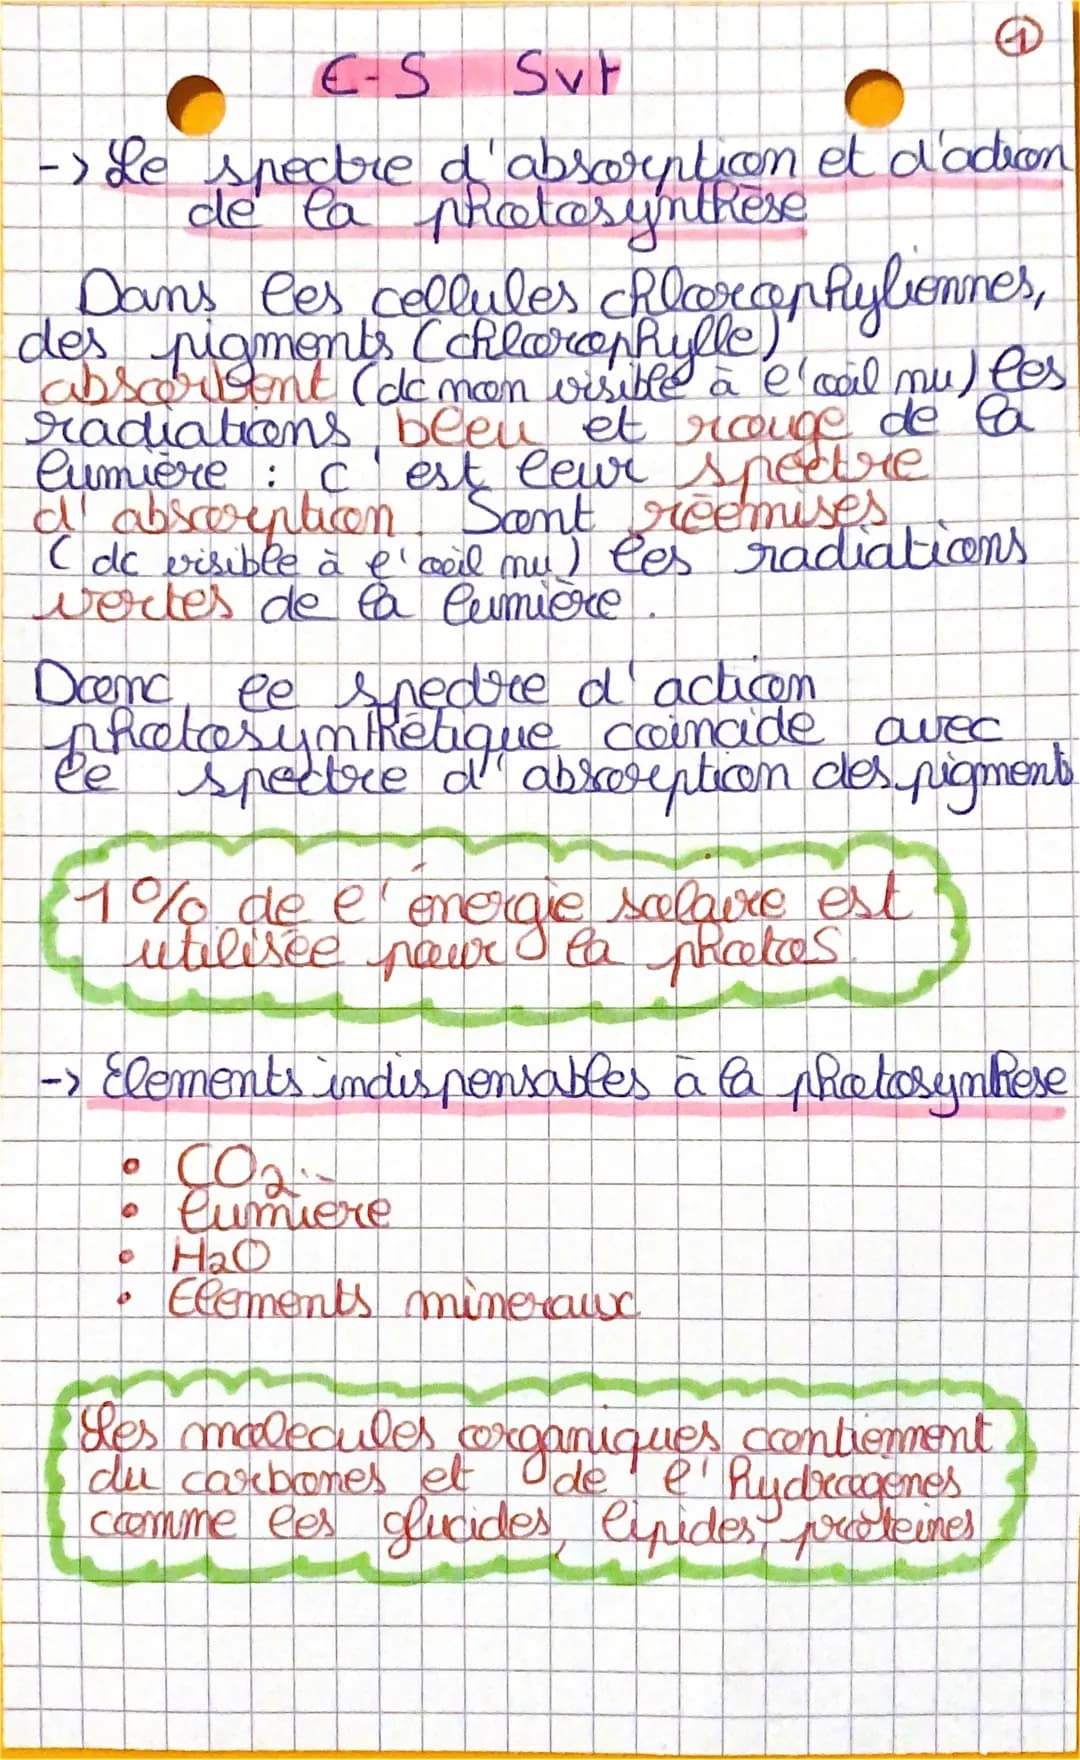 1
E-S Svt
-> Le spectre d'absorption et d'action
de la photosynthèse
Dans les cellules chlorophyliennes,
des pigments (chlorophylle)
absorbent (dc non visible à l'œil nu) les
radiations bleu et rouge de la
lumière : c'est leur spectre
d'absorption. Sont réemises
(dc visible à l'œil nu) les radiations
vertes de la lumière.
Donc, le spectre d'action
photosynthétique coincide avec
le spectre d'absorption des pigments
1% de l'énergie solaire est
utilisée pour la photoS.
-> Elements indispensables à la photosynthese
• CO2
• lumière
• H2O
• Elements mineraux
Les molecules organiques contiennent
du carbones et de l'hydrogénes
comme les glucides, lipides, protéines